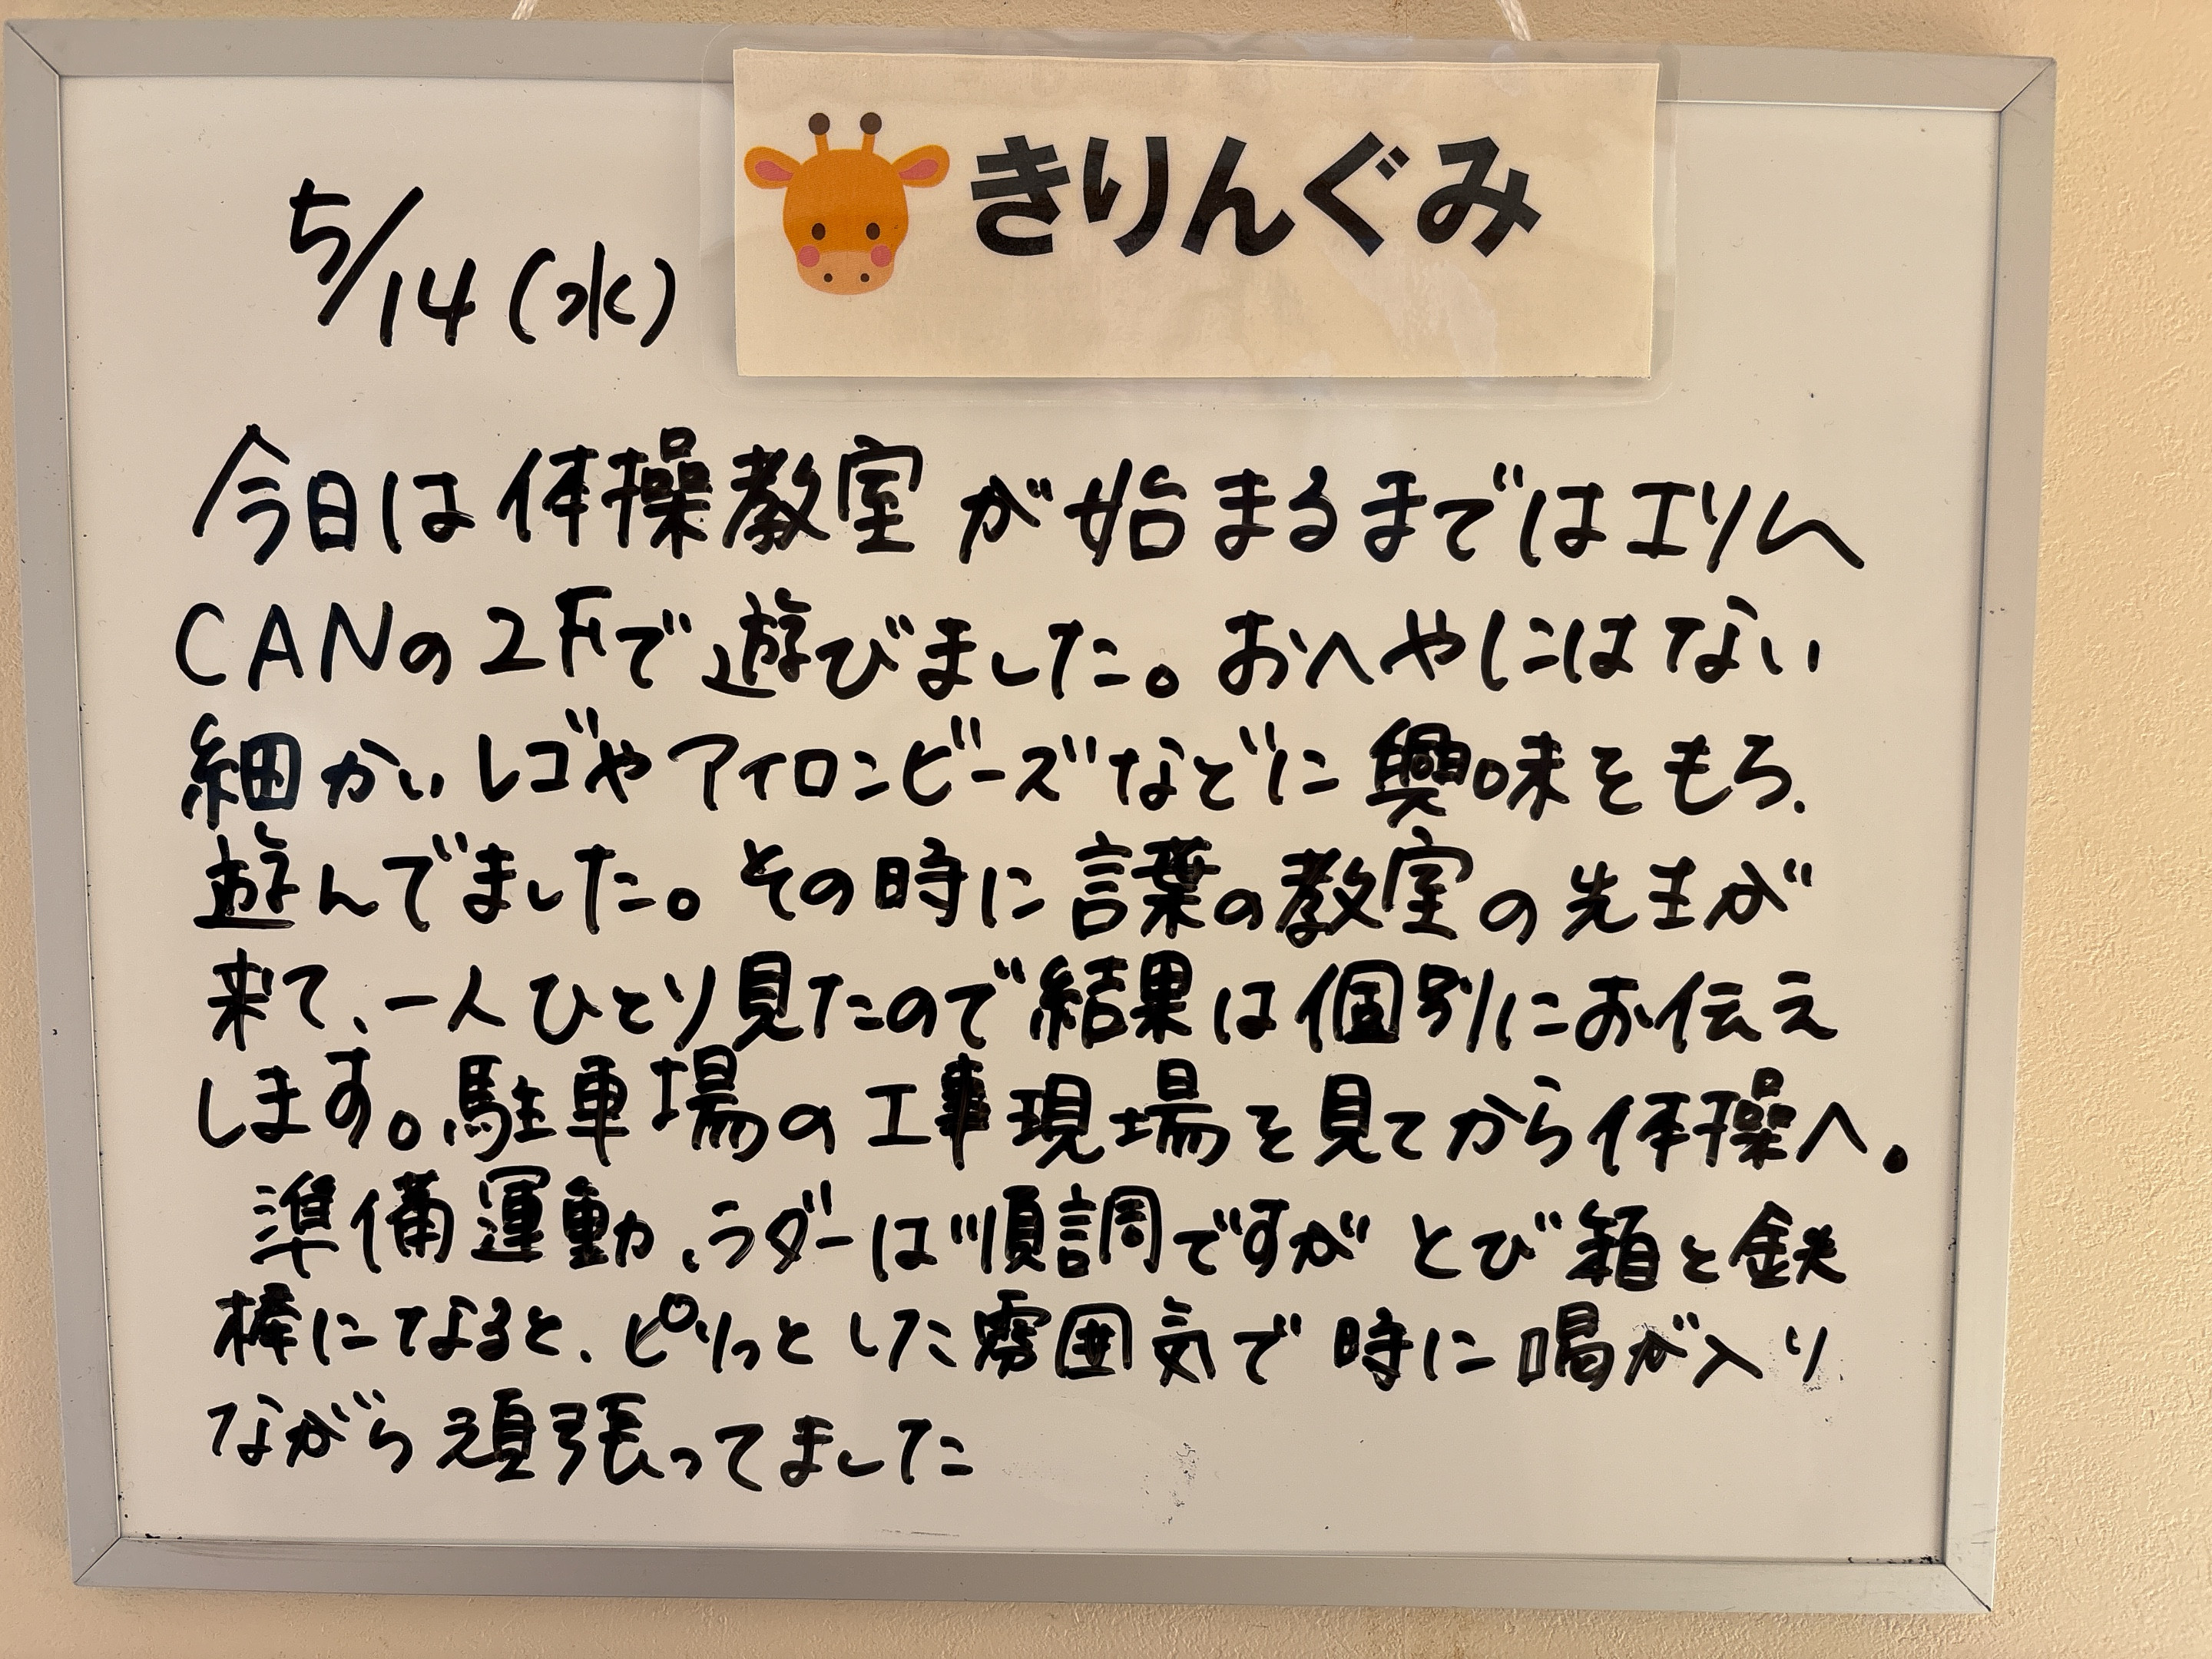 きりんぐみ
5/14(水)
今日は体操教室が始まるまではエリム
CANの2Fで遊びました。おへやにはない
細かいレゴやアイロンビーズなどに興味をもち、
遊んでました。その時に言葉の教室の先生が
来て、一人ひとり見たので結果は個別にお伝え
します。駐車場の工事現場を見てから体操へ。
準備運動、ラダーは順調ですがとび箱と鉄
棒になると、ピリっとした雰囲気で時に喝が入り
ながら頑張ってました